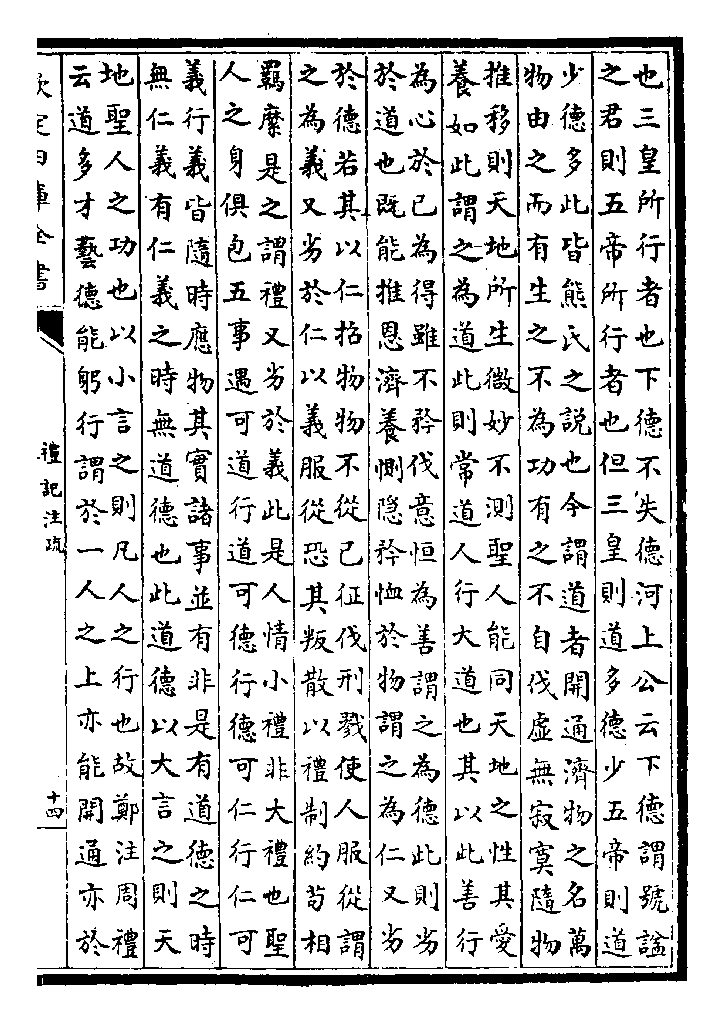 也三皇所行者也下德不失德河上公云下德謂號謚
之君則五帝所行者也但三皇則道多德少五帝則道
少德多此皆熊氏之說也今謂道者開通濟物之名萬
物由之而有生之不為功有之不自伐虛無寂寞隨物
推移則天地所生微妙不測聖人能同天地之性其愛
養如此謂之為道此則常道人行大道也其以此善行
為心於已為得雖不矜伐意恒為善謂之為德此則劣
於道也既能推恩濟養惻隠矜恤於物謂之為仁又劣
於德若其以仁招物物不從已征伐刑戮使人服從謂
之為義又劣於仁以義服從恐其叛散以禮制約苟相
羈縻是之謂禮又劣於義此是人情小禮非大禮也聖
人之身俱包五事遇可道行道可德行德可仁行仁可
義行義皆隨時應物其實諸事並有非是有道德之時
無仁義有仁義之時無道德也此道德以大言之則天
地聖人之功也以小言之則凡人之行也故鄭注周禮
云道多才藝德能躬行謂於一人之上亦能開通亦於
欽定四庫全書
禮記注疏
十四